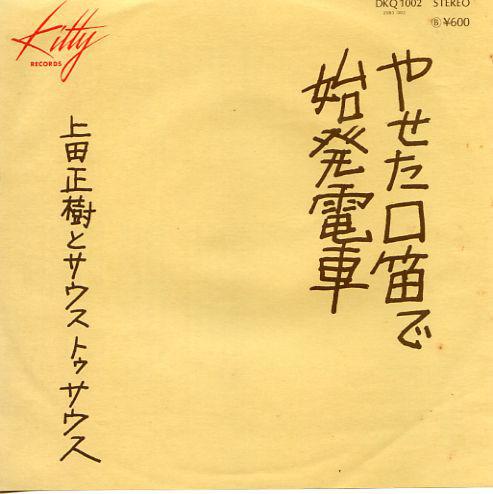 Kitty
RECORDS
DKQ 1002 STEREO
Ⓑ ¥600
やせた口笛で
始発電車
上田正樹とサウス トゥ サウス